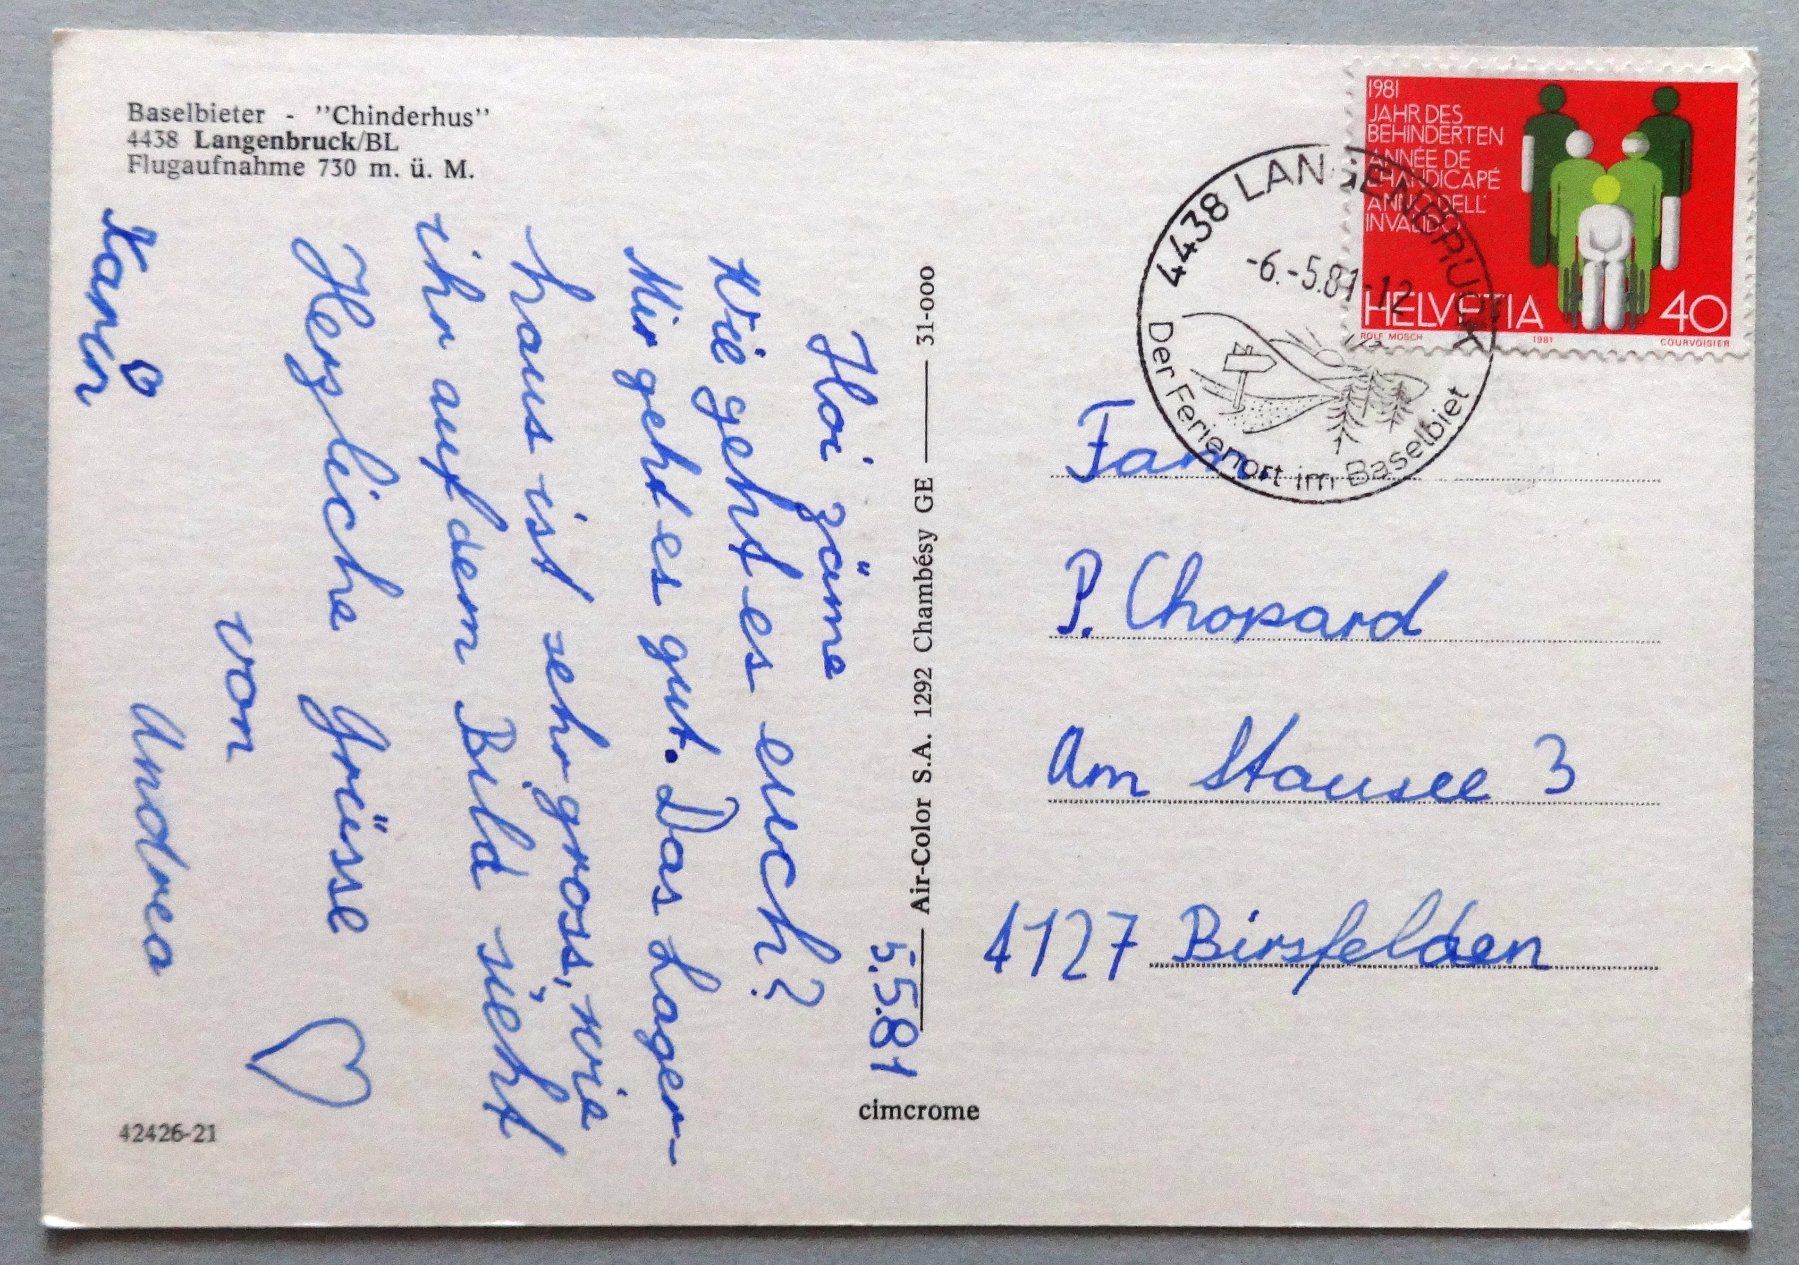 Baselbieter - "Chinderhus"
4438 Langenbruck/BL
Flugaufnahme 730 m. ü. M.
5.5.81
Hoi zäme
Wie geht es euch?
Mir geht es gut. Das Lager-
haus ist sehr gross, wie
ihr auf dem Bild sieht
Herzliche Grüsse
von
Andrea
Karin
42426-21
Air-Color S.A. 1292 Chambésy GE 31-000
cimcrome
1981
JAHR DES
BEHINDERTEN
ANNÉE DE
L'HANDICAPÉ
ANNO DELL'
INVALIDO
HELVETIA 40
ROLF MOSCH 1981 COURVOISIER
4438 LANGENBRUCK
-6.-5.81-12
Der Ferienort im Baselbiet
Fam.
P. Chopard
Am Stausee 3
4127 Birsfelden